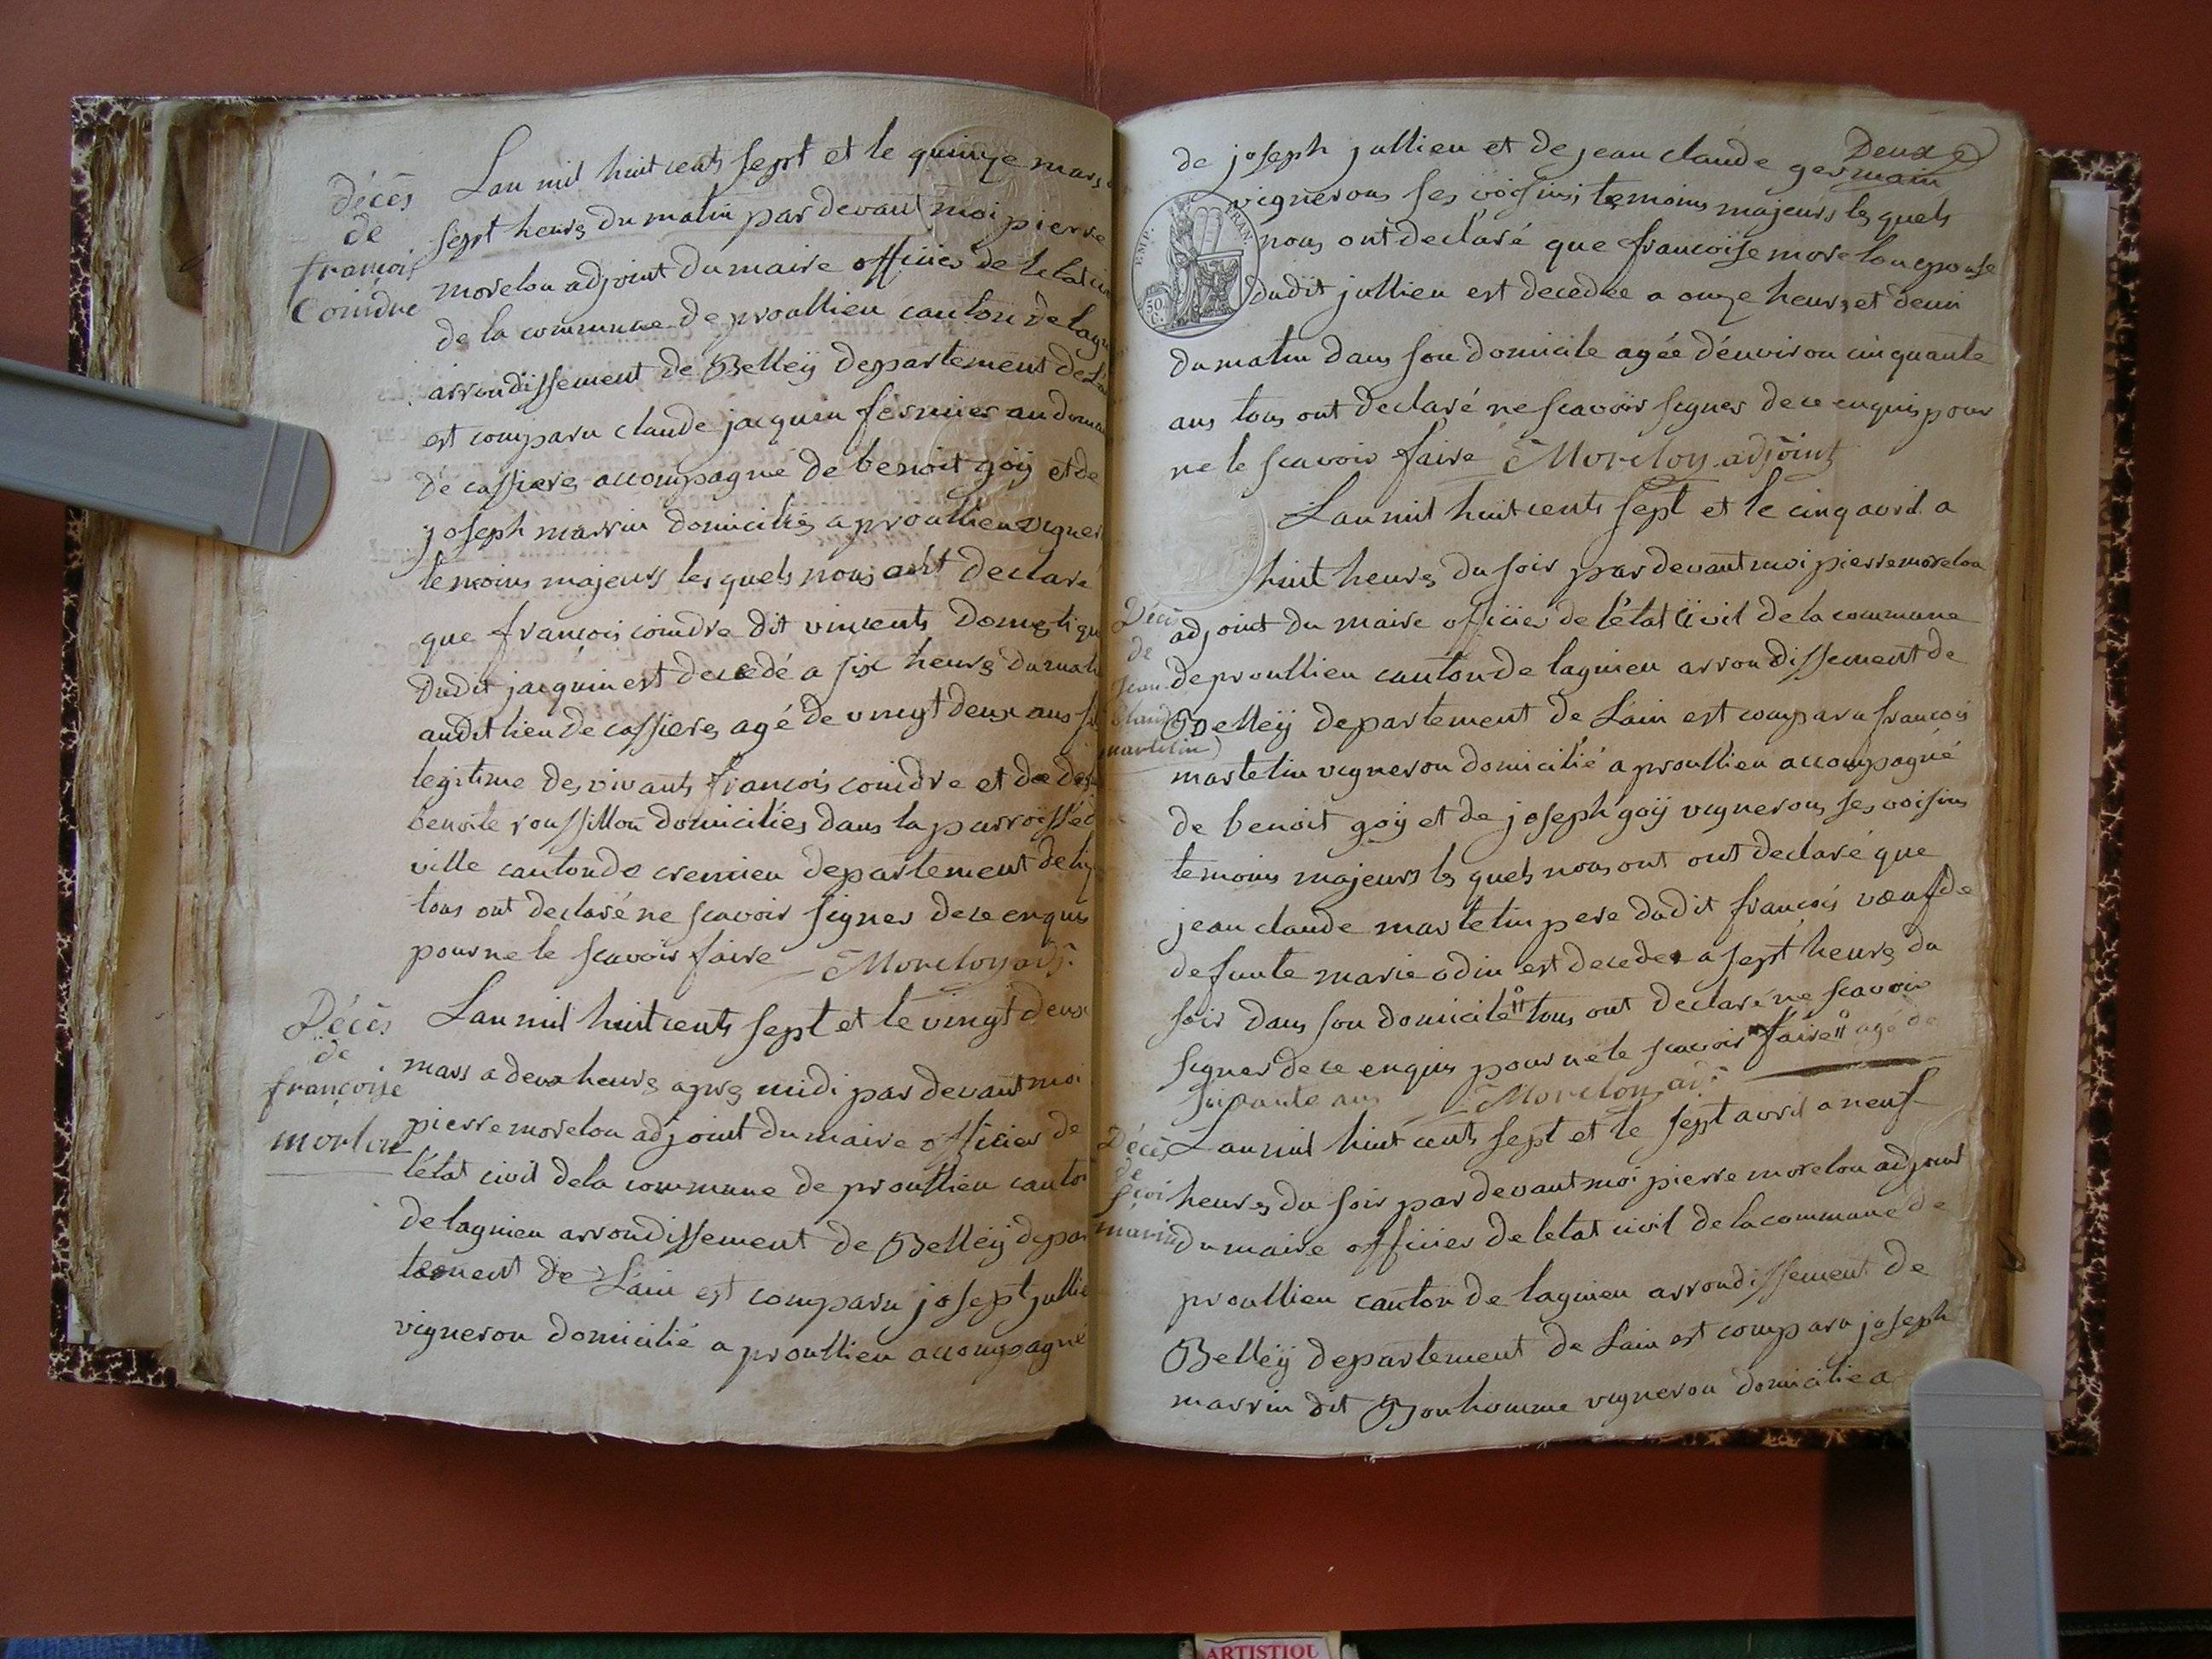 décès
de
françois
Coindre
Lan mil huit cents sept et le quinze mars
sept heures du matin par devant moi pierre
morelon adjoint du maire officier de letat
de la commune de proullieu canton de lagn
arrondissement de Belleÿ departement de
est comparu claude jacquin fermier au
de cassieres accompagné de benoit goÿ et de
joseph marrin domiciliés a proullieu vigner
temoins majeurs les quels nous ont declaré
que françois coindre dit vincents domestiqu
dudit jacquin est decedé a six heures du mat
audit lieu de cassieres agé de vingt deux ans
legitime des vivants françois coindre et de
benoite roussillon domiciliés dans la parroisse
ville canton de cremieu departement de
tous ont declaré ne scavoir signer de ce enquis
pour ne le scavoir faire Morelon adj.
Décès
de
françoise
morlon
Lan mil huit cents sept et le vingt deux
mars a deux heures apres midi par devant moi
pierre morelon adjoint du maire officier de
létat civil de la commune de proullieu canton
de lagnieu arrondissement de Belleÿ depar
tement de Lain est comparu josept jullie
vigneron domicilié a proullieu accompagné
Deux
de joseph jullien et de jean claude germain
vignerons ses voisins temoins majeurs les quels
nous ont declaré que françoise morelon epouse
dudit jullien est decedée a onze heures et demi
du matin dans son domicile agée d'environ cinquante
ans tous ont declaré ne scavoir signer de ce enquis pour
ne le scavoir faire Morelon adjoint
EMP. FRAN.
50
C.
Lan mil huit cents sept et le cinq avril a
huit heures du soir par devant moi pierre morelon
Décès
de
jean
Claude
martelin
adjoint du maire officier de l'état civil de la commune
de proullieu canton de lagnieu arrondissement de
Belleÿ departement de Lain est comparu françois
martelin vigneron domicilié a proullieu accompagné
de benoit goÿ et de joseph goÿ vignerons ses voisins
temoins majeurs les quels nous ont ont declaré que
jean claude martelin pere dudit françois vœuf de
defunte marie odin est decedé a sept heures du
soir dans son domicile tous ont declaré ne scavoir
signer de ce enquis pour ne le scavoir faire agé de
soixante ans Morelon adj.
Décès
de
marrin
Lan mil huit cents sept et le sept avril a neuf
heures du soir par devant moi pierre morelon adjoint
du maire officier de letat civil de la commune de
proullieu canton de lagnieu arrondissement de
Belleÿ departement de Lain est comparu joseph
marrin dit Bonhomme vigneron domicilié a
ARTISTIQU